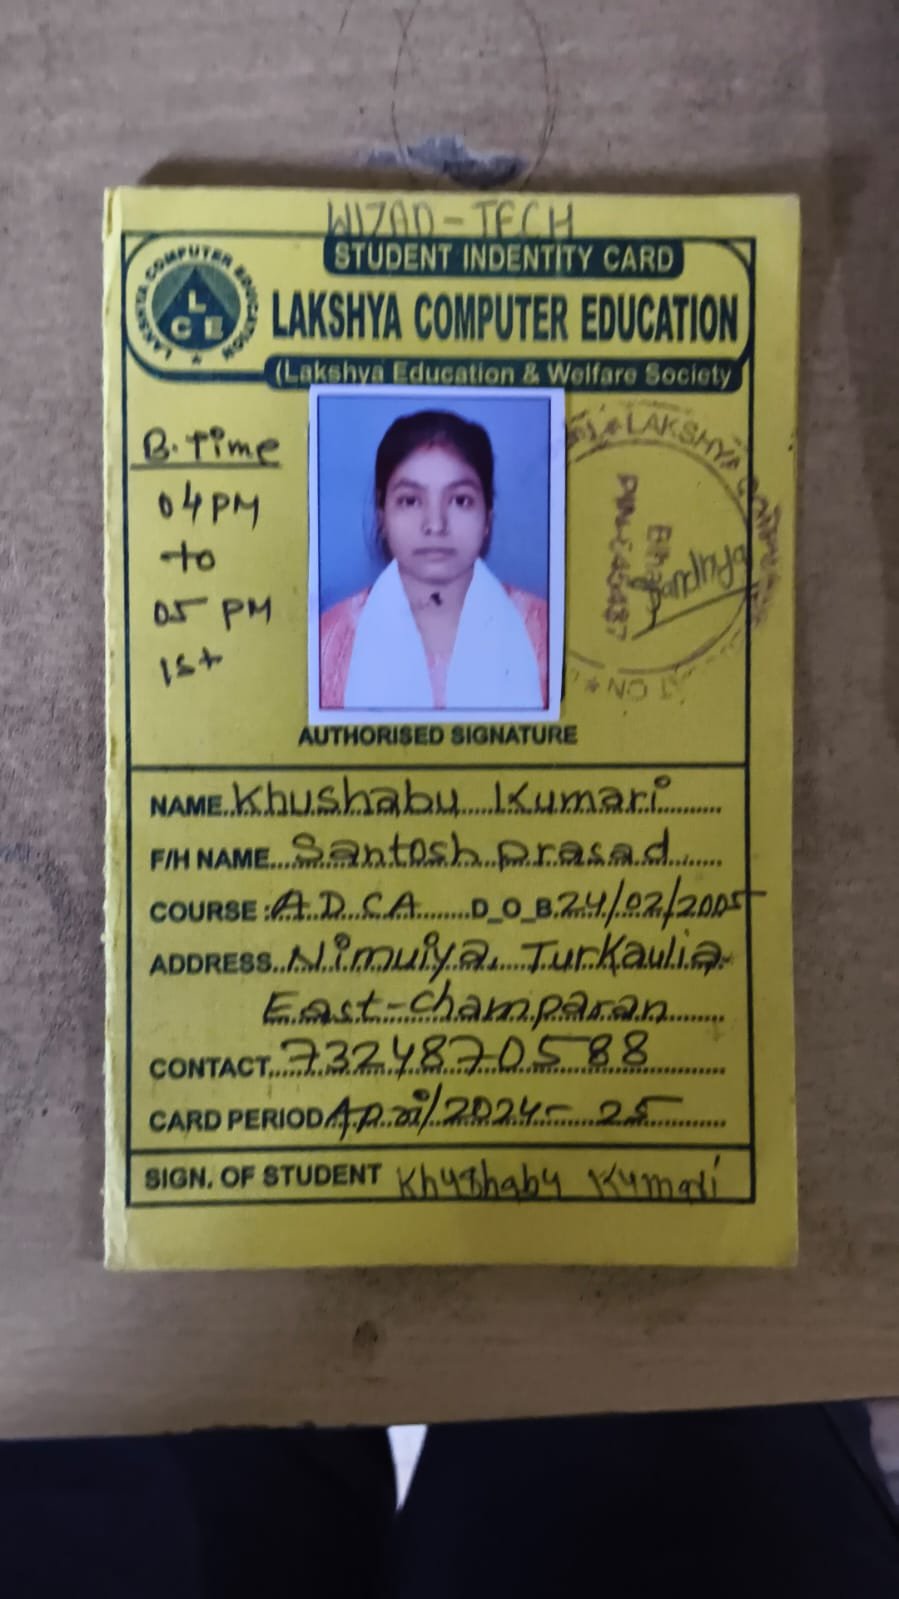 WIZAD-TECH
STUDENT INDENTITY CARD
LAKSHYA COMPUTER EDUCATION
(Lakshya Education & Welfare Society
LAKSHYA COMPUTER EDUCATION
L
C E
B.Time
04 PM
to
05 PM
1st
LAKSHYA
Bihar
AUTHORISED SIGNATURE
NAME Khushabu Kumari
F/H NAME Santosh prasad
COURSE : A.D.C.A D_O_B 24/02/2005
ADDRESS Nimuiya, Turkaulia
East-Champaran
CONTACT 7324870588
CARD PERIOD April/2024-25
SIGN. OF STUDENT Khushabu Kumari